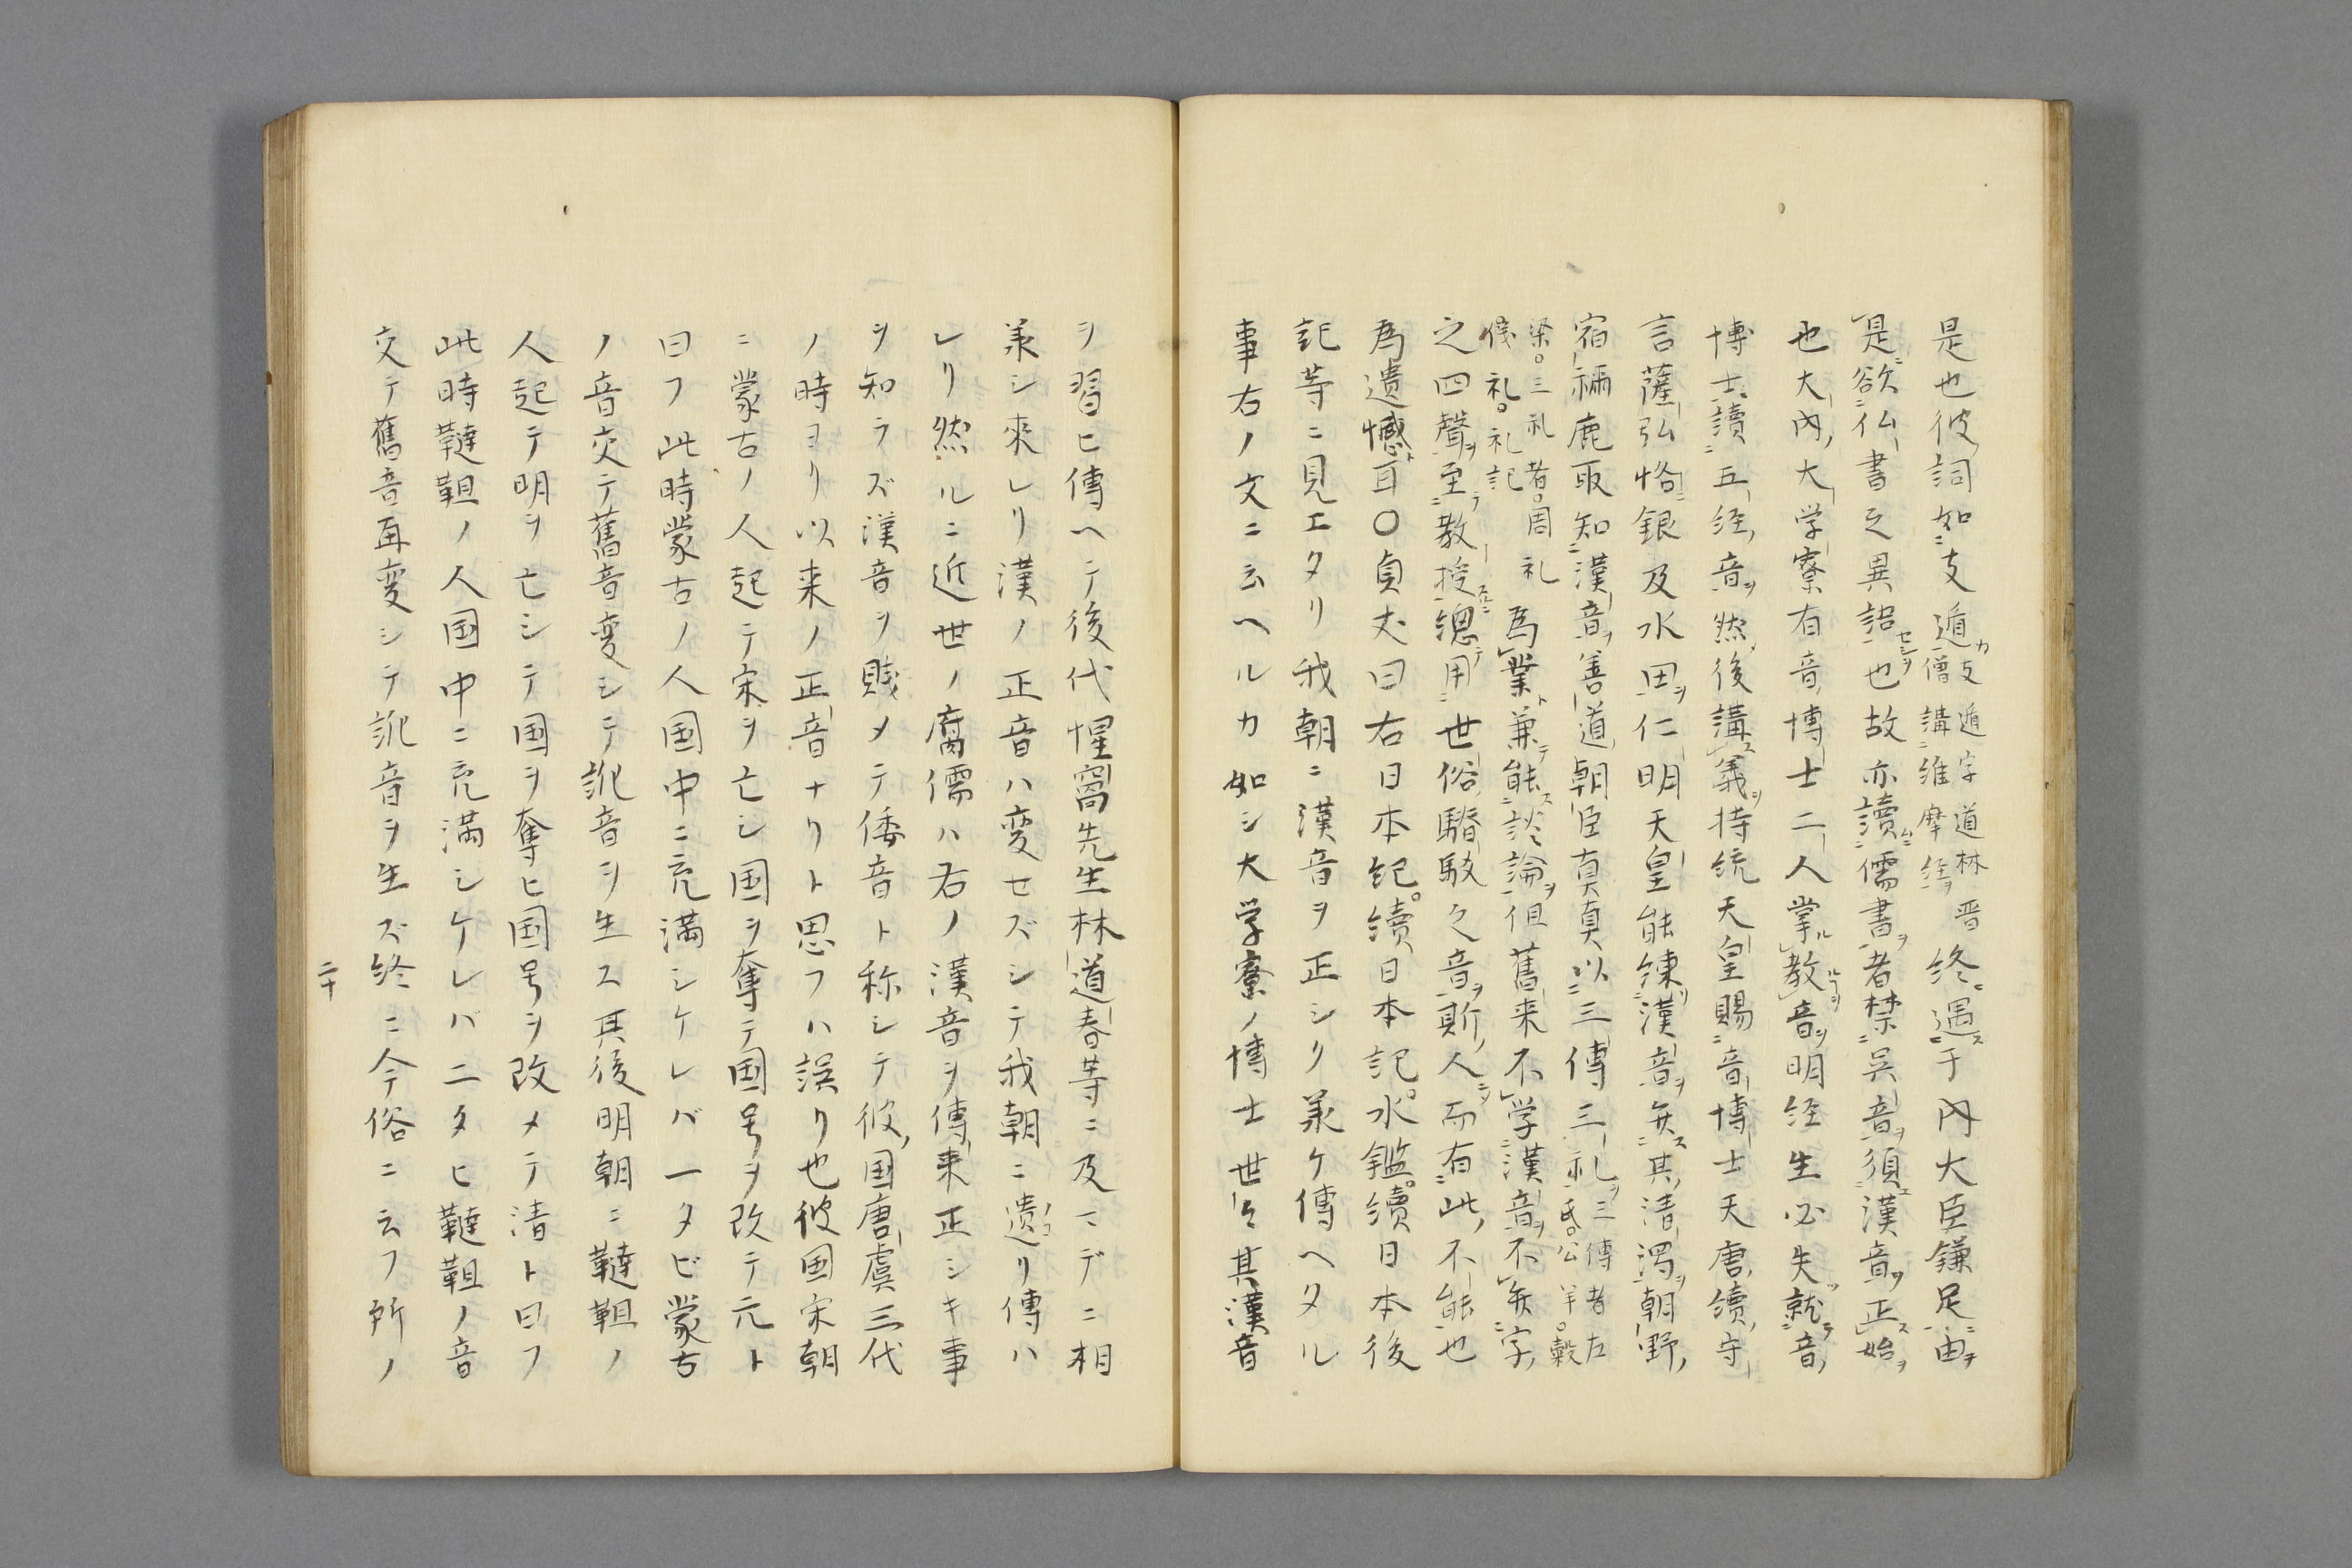 是也彼詞如支遁支遁字道林晋僧講維摩経終遇于内大臣鎌足由
是欲仏書之異詔也故亦讀儒書者禁呉音須漢音正始
也大内大学寮有音博士二人掌教音明経生必先就音
博士讀五経音然後講義持統天皇賜音博士天唐續守
言薩弘恪銀及水田仁明天皇能練漢音無其清濁朝野
宿禰鹿取知漢音善道朝臣真貞以三傳三礼三傳者左氏。公羊。穀
梁。三礼者。周礼儀礼。礼記為業兼能談論但舊来不学漢音不弁字
之四聲至教授總用世俗䮞駁之音斯人而有此不能也
為遺憾耳〇貞丈曰右日本紀。續日本記。水鑑。續日本後
記等ニ見エタリ我朝ニ漢音ヲ正シク羕ケ傳ヘタル
事右ノ文ニ云ヘルカ如シ大学寮ノ博士世々其漢音
ヲ習ヒ傳ヘテ後代惺窩先生林道春等ニ及マデニ相
羕シ來レリ漢ノ正音ハ変セズシテ我朝ニ遺リ傳ハ
レリ然ルニ近世ノ腐儒ハ右ノ漢音ヲ傳来正シキ事
ヲ知ラズ漢音ヲ賤メテ倭音ト称シテ彼国唐虞三代
ノ時ヨリ以来ノ正音ナリト思フハ誤リ也彼国宋朝
ニ蒙古ノ人起テ宋ヲ亡シ国ヲ奪テ国号ヲ改テ元ト
曰フ此時蒙古ノ人国中ニ充満シケレバ一タビ蒙古
ノ音交テ舊音変シテ訛音ヲ生ス其後明朝ニ韃靼ノ
人起テ明ヲ亡シテ国ヲ奪ヒ国号ヲ改メテ清ト曰フ
此時韃靼ノ人国中ニ充満シケレバ二タヒ韃靼ノ音
交テ舊音再変シテ訛音ヲ生ズ終ニ今俗ニ云フ所ノ
二十